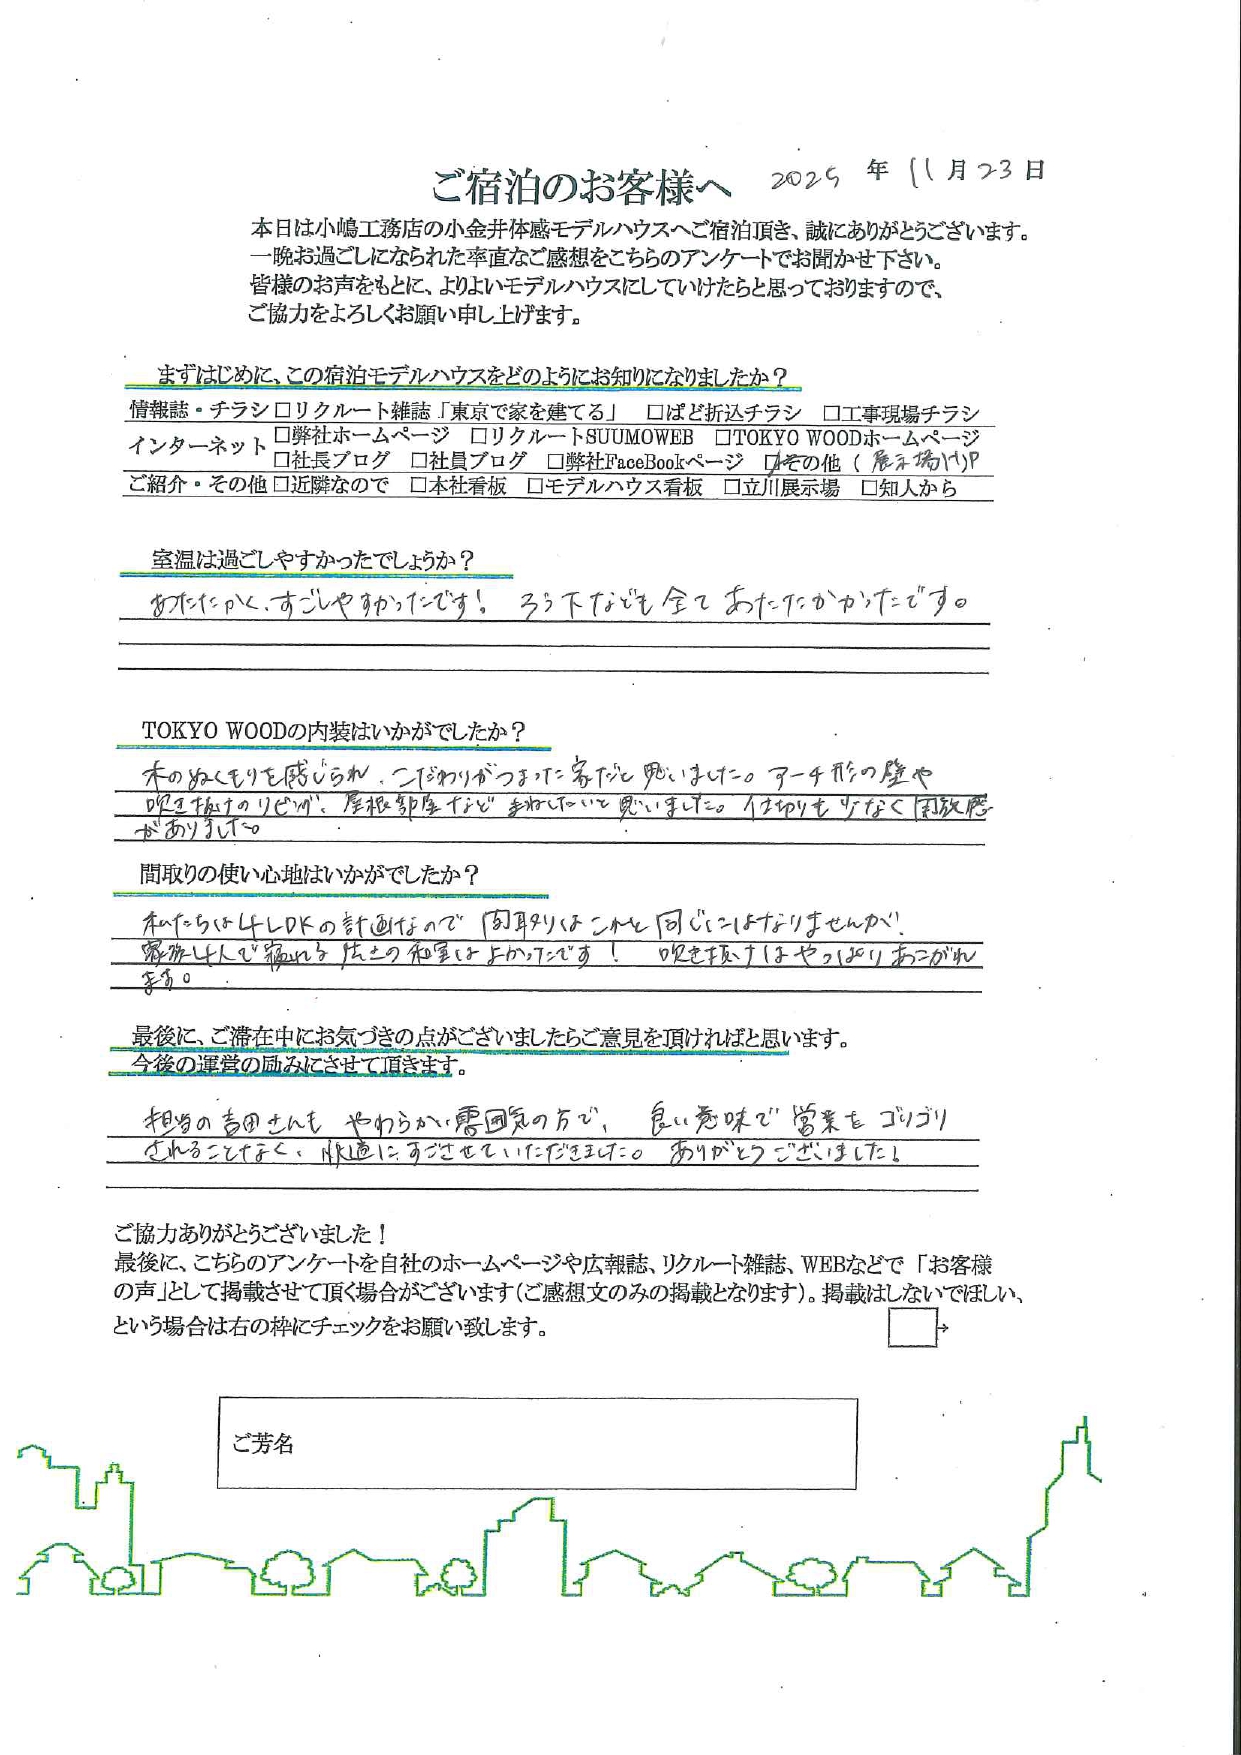 2025 年 11月 23日
ご宿泊のお客様へ
本日は小嶋工務店の小金井体感モデルハウスへご宿泊頂き、誠にありがとうございます。
一晩お過ごしになられた率直なご感想をこちらのアンケートでお聞かせ下さい。
皆様のお声をもとに、よりよいモデルハウスにしていけたらと思っておりますので、
ご協力をよろしくお願い申し上げます。
まずはじめに、この宿泊モデルハウスをどのようにお知りになりましたか？
情報誌・チラシ □リクルート雑誌「東京で家を建てる」 □ぱど折込チラシ □工事現場チラシ
インターネット □弊社ホームページ □リクルートSUUMOWEB □TOKYO WOODホームページ
□社長ブログ □社員ブログ □弊社FaceBookページ ☑その他 ( 展示場HP
ご紹介・その他 □近隣なので □本社看板 □モデルハウス看板 □立川展示場 □知人から
室温は過ごしやすかったでしょうか？
あたたかく、すごしやすかったです! ろう下なども全てあたたかかったです。
TOKYO WOODの内装はいかがでしたか？
木のぬくもりを感じられ、こだわりがつまった家だと思いました。アーチ形の壁や
吹き抜けのリビング、屋根部屋などまねしたいと思いました。仕切りも少なく開放感
がありました。
間取りの使い心地はいかがでしたか？
私たちは4LDKの計画なので間取りはこれと同じにはなりませんが、
家族4人で寝れる 和室はよかったです! 吹き抜けはやっぱりあこがれ
ます。
最後に、ご滞在中にお気づきの点がございましたらご意見を頂ければと思います。
今後の運営の励みにさせて頂きます。
担当の吉田さんも やわらかい雰囲気の方で、 良い意味で営業をゴリゴリ
されることなく、快適にすごさせていただきました。 ありがとうございました!
ご協力ありがとうございました！
最後に、こちらのアンケートを自社のホームページや広報誌、リクルート雑誌、WEBなどで「お客様
の声」として掲載させて頂く場合がございます(ご感想文のみの掲載となります)。掲載はしないでほしい、
という場合は右の枠にチェックをお願い致します。
ご芳名